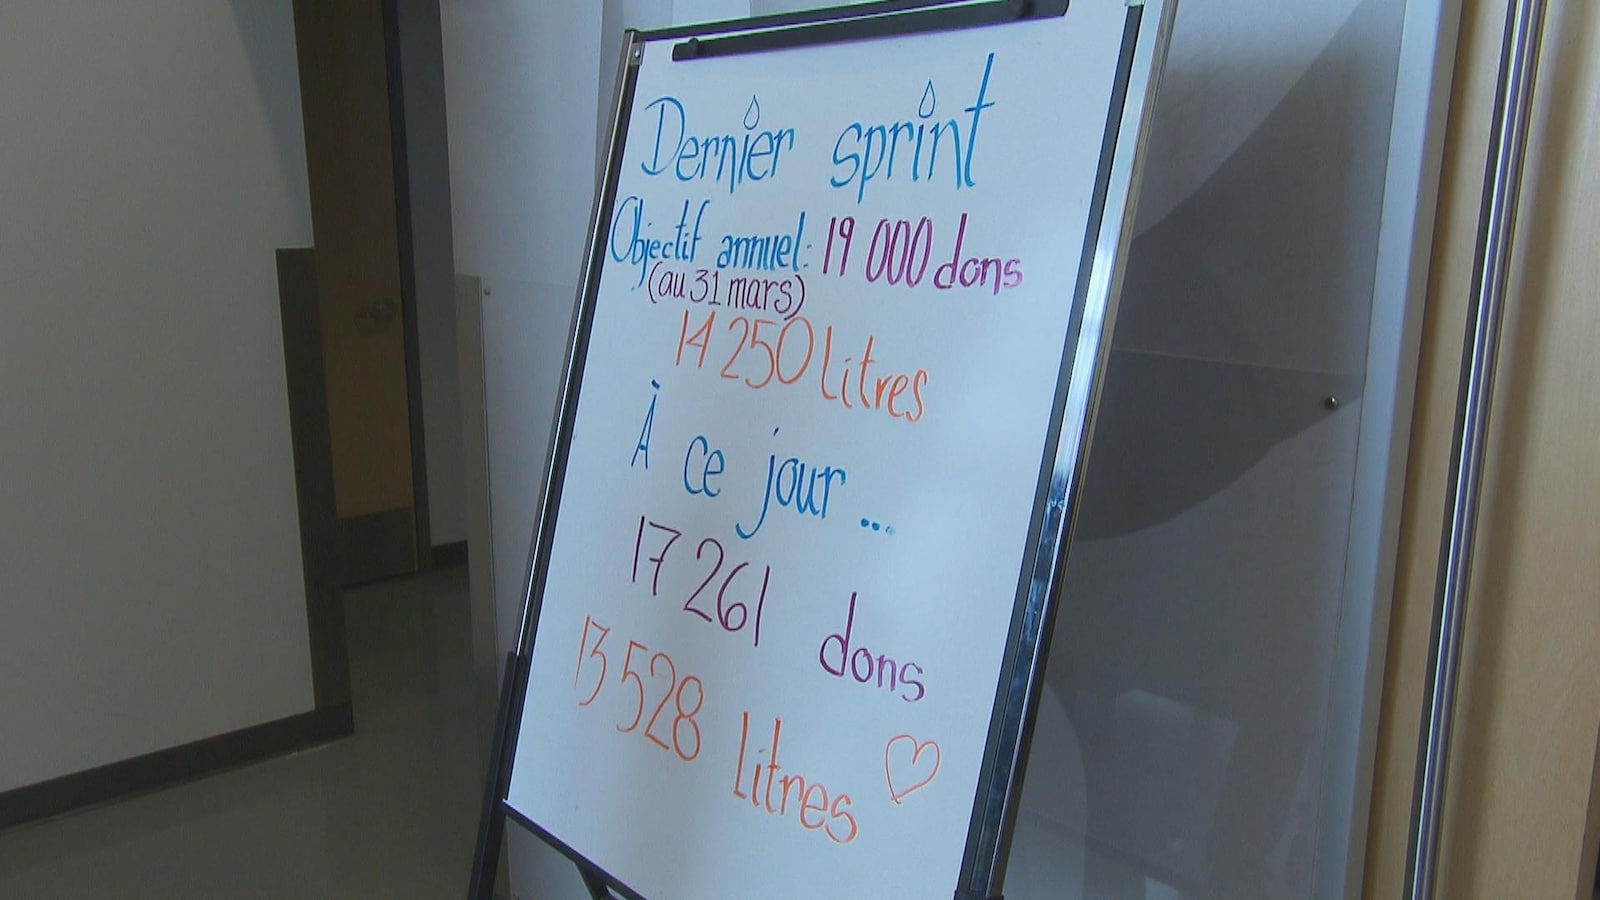 Dernier sprint
Objectif annuel: 19 000 dons
(au 31 mars)
14 250 Litres
À ce jour ...
17 261 dons
13 528 litres